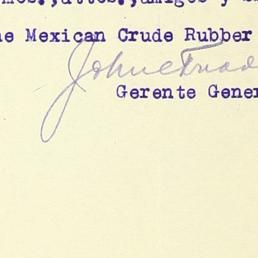 mos.,attos.,amigos y s
he Mexican Crude Rubber
John
Gerente Gener